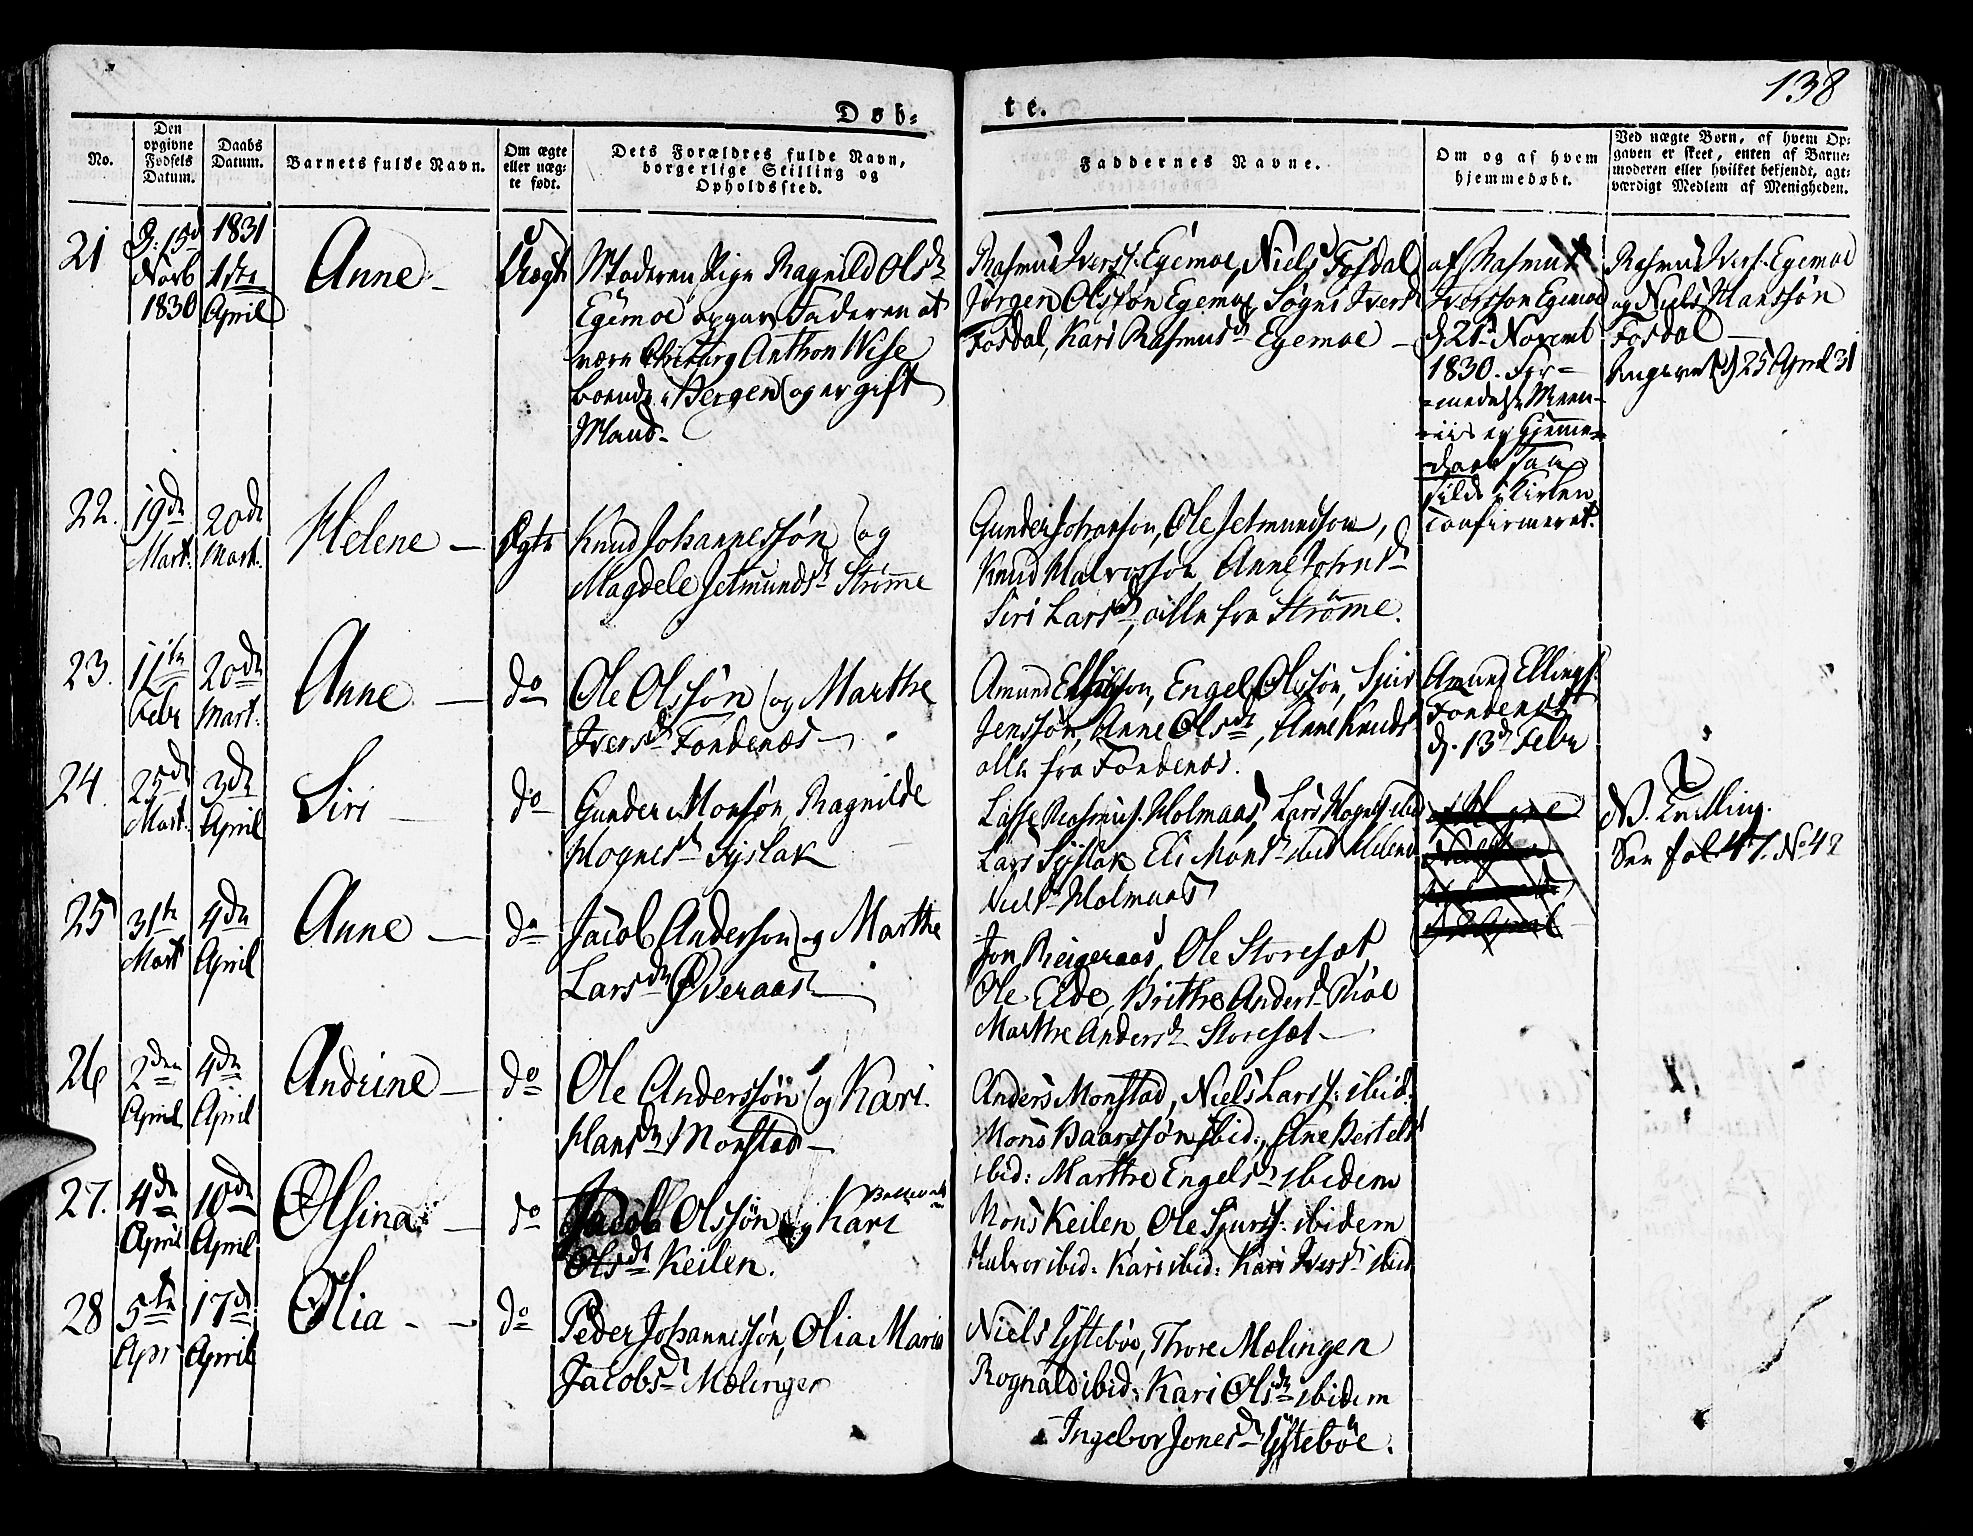 138
Døb-
te.
No.
Den opgivne Fødsels Datum.
Daabs Datum.
Barnets fulde Navn.
Om ægte eller uæg-te født.
Dets Forældres fulde Navn, borgerlige Stilling og Opholdssted.
Faddernes Navne.
Om og af hvem hjemmedøbt.
Ved uægte Børn, af hvem Op-
gaven er skeet, enten af Barne-
moderen eller hvilket bekjendt, agt-
værdigt Medlem af Menigheden.
21
D: 15d
Novb
1830
1831
1ste
April
Anne
Uægte
Moderen Pige Ragnild Olsdr
Egemoe opgav Faderen at
være Anthon Wise
boende i Bergen og er gift
Mand.
Rasmus Iverss. Egemoe, Niels Fosdal
Jörgen Olssøn Egemoe, Søgni Iversd
Fosdal, Kari Rasmusd Egemoe
af Rasmus
Iversson Egemoe
d 21d Novemb
1830. For-
-medelst Meen-
-iis og Hjemme-
daab saa
silde i Kirken
confirmeret.
Rasmus Ivers. Egemoe
og Niels Hanssøn
Fosdal
Angivet d 25 April 31
22.
19de
Mart.
20de
Mart.
Helene
Ægte
Knud Johannessøn og
Magdele Jetmundsdr Strømme
Gunder Johanson, Ole Jetmundson,
Knud Halvorsøn, Anne Johnsd
Siri Larsd, alle fra Strømme.
23.
11te
Febr
20de
Mart.
Anne
do
Ole Olssøn og Marthe
Iversdr Fondenæs
Amund Ellingson, Engel Olssøn, Sjur
Jenssøn, Anne Olsdr, Anne Knudsd
alle fra Fondenæs.
Amund Ellings.
Fondenæs
d. 13d Febr
24.
25de
Mart.
3de
April
Siri
do
Gunder Monsøn, Ragnilde
Hognesdr Syslak
Lasse Rasmus. Holmaas, Lars Hognes. ibid
Lars Syslak, Eli Monsd ibid Helene
Nielsd Holmaas
N. Tvilling.
See fol 47. No 42
25
31te
Mart
4de
April
Anne
do
Jacob Anderson og Marthe
Larsdr Øveraas
Jon Reigeraas, Ole Storesæt,
Ole Eide, Brithe Andersd Riøe
Marthe Andersdr Storesæt
26
2den
April
4de
April
Andrine
do
Ole Anderssøn og Kari
Hansdr Monstad
Anders Monstad, Niels Larss: ibid:
Mons Baarssøn ibid:, Ane Bertelsd
ibid: Marthe Engelsd ibidem
27.
4de
April
10de
April
Olsina
do
Jacob Olssøn og Kari
Olsdr Keilen.
Mons Keilen, Ole Sjurss: ibidem
Halvor ibid: Kari ibid: Kari Iversd ibid
28
5te
Apr
17de
April
Olia
do
Peder Johannessøn, Olia Maria
Jacobsdr Mælingen
Niels Ystebøe, Thore Mælingen
Rognald ibid: Kari Olsdr ibidem
Ingebor Jonesdr Ystebøe.